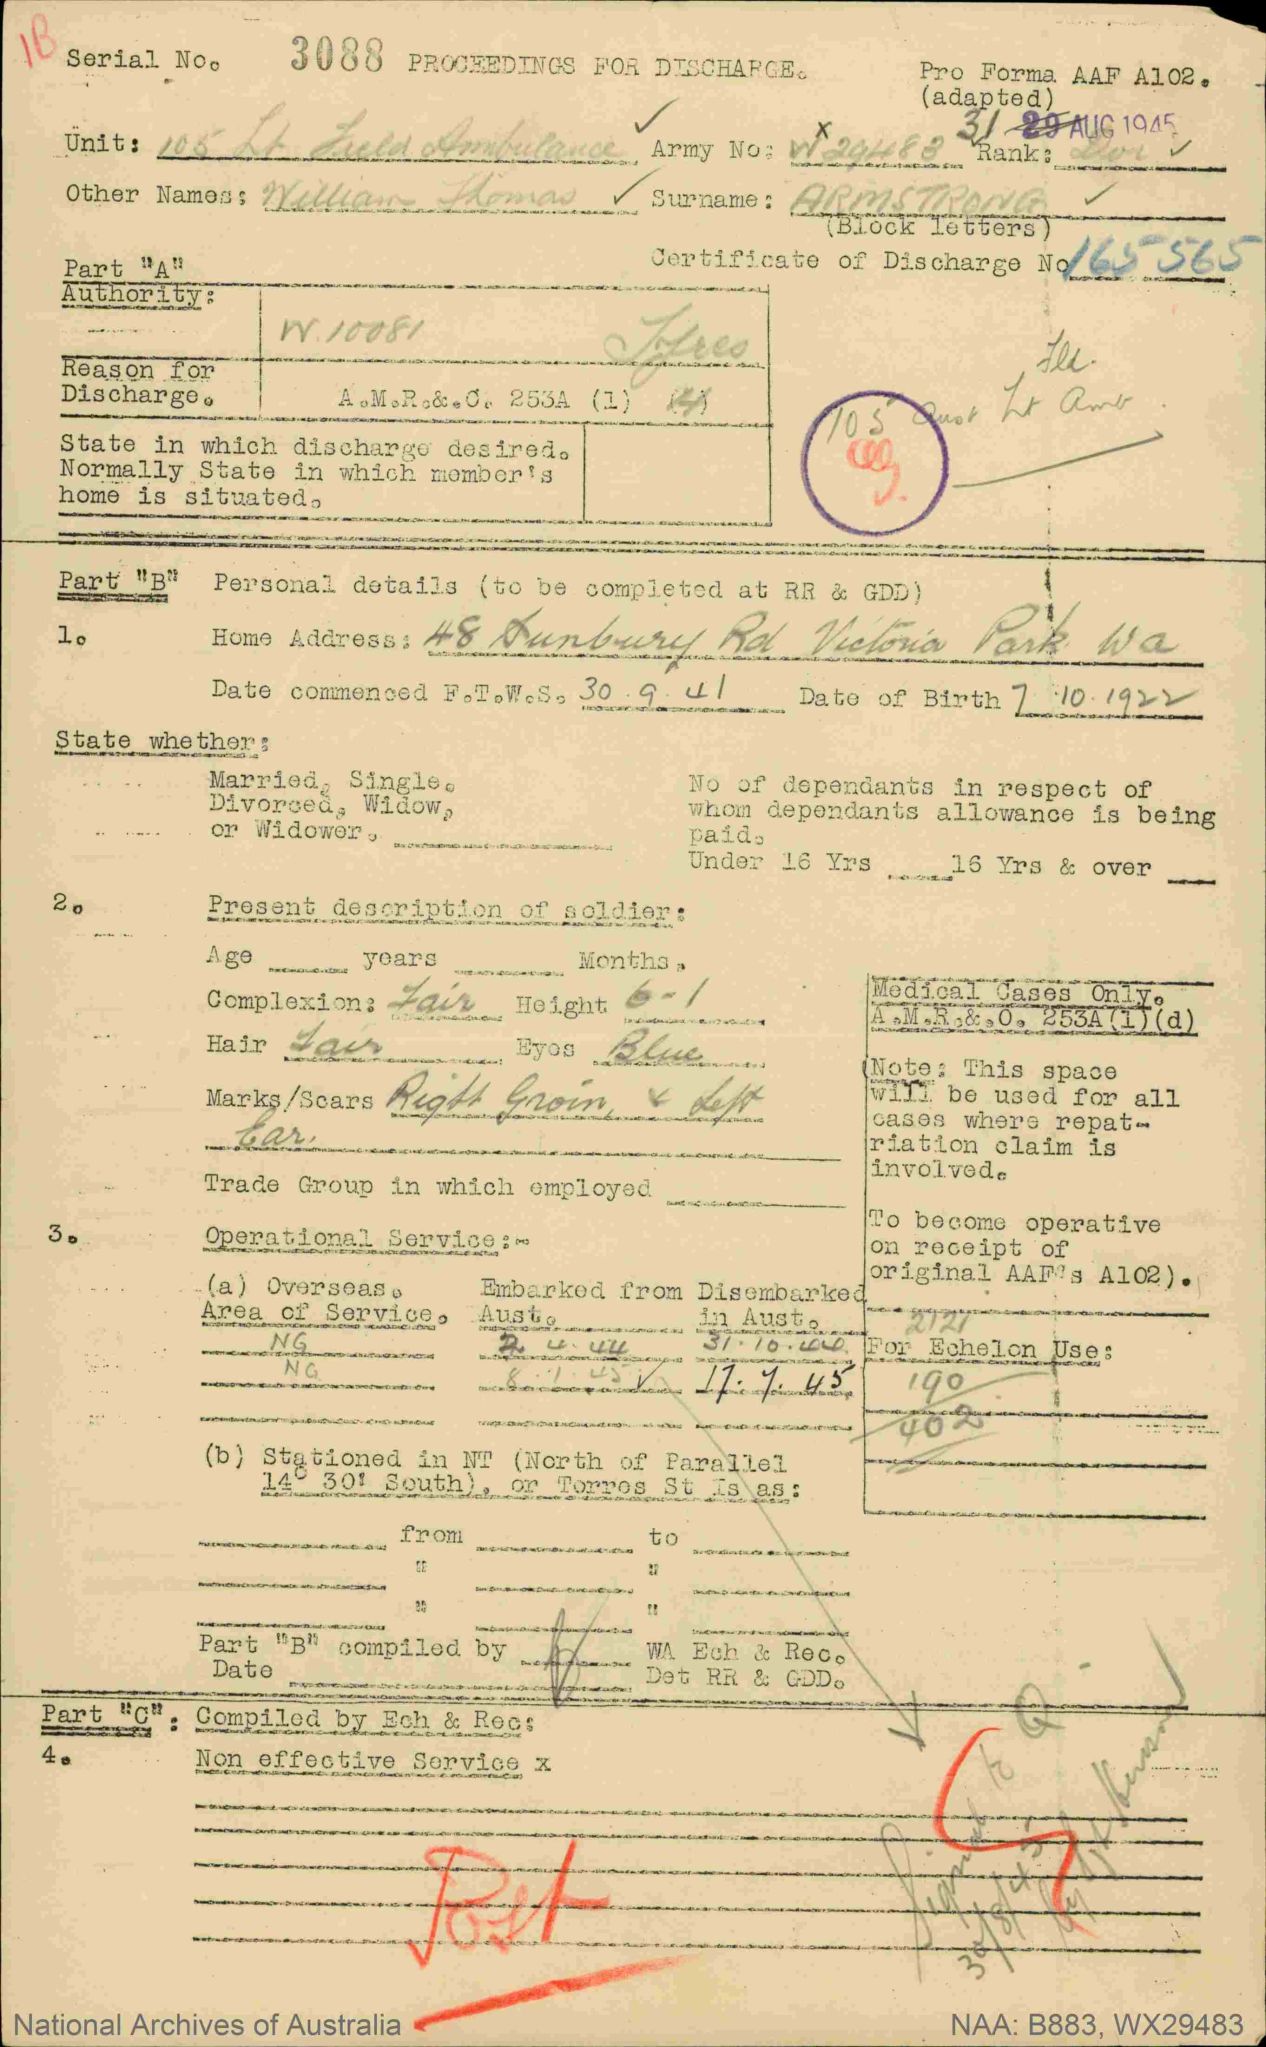 1B
Serial No. 3088 PROCEEDINGS FOR DISCHARGE.
Pro Forma AAF A102.
(adapted)
31 29 AUG 1945
Unit: 105 Lt Field Ambulance Army No: WX29483 Rank:
Other Names: William Thomas Surname: ARMSTRONG
(Block letters)
Certificate of Discharge No 165565
Part "A"
Authority:
W.10081
Reason for
Discharge. A.M.R.&.O. 253A (1)
Fld.
105 Aust Lt Amb
State in which discharge desired.
Normally State in which member's
home is situated.
Part "B" Personal details (to be completed at RR & GDD)
1. Home Address: 48 Sunbury Rd Victoria Park Wa
Date commenced F.T.W.S. 30.9.41 Date of Birth 7.10.1922
State whether:
Married, Single.
Divorced, Widow,
or Widower.
No of dependants in respect of
whom dependants allowance is being
paid.
Under 16 Yrs 16 Yrs & over
2. Present description of soldier:
Age years Months.
Complexion: Fair Height 6-1
Hair Fair Eyes Blue
Marks/Scars Right Groin, & Left
Ear.
Trade Group in which employed
Medical Cases Only.
A.M.R.&.O. 253A(1)(d)
Note: This space
will be used for all
cases where repat-
riation claim is
involved.
To become operative
on receipt of
original AAF's A102).
3. Operational Service:-
(a) Overseas. Embarked from Disembarked
Area of Service. Aust. in Aust.
NG 2.4.44 31.10.44
NG 8.1.45 17.7.45
2121
For Echelon Use:
190
402
(b) Stationed in NT (North of Parallel
14° 30' South), or Torres St Is as:
from to
" "
" "
Part "B" compiled by WA Ech & Rec.
Date Det RR & GDD.
Part "C": Compiled by Ech & Rec:
4. Non effective Service x
Signal to Q
30/8/45
Post
National Archives of Australia
NAA: B883, WX29483